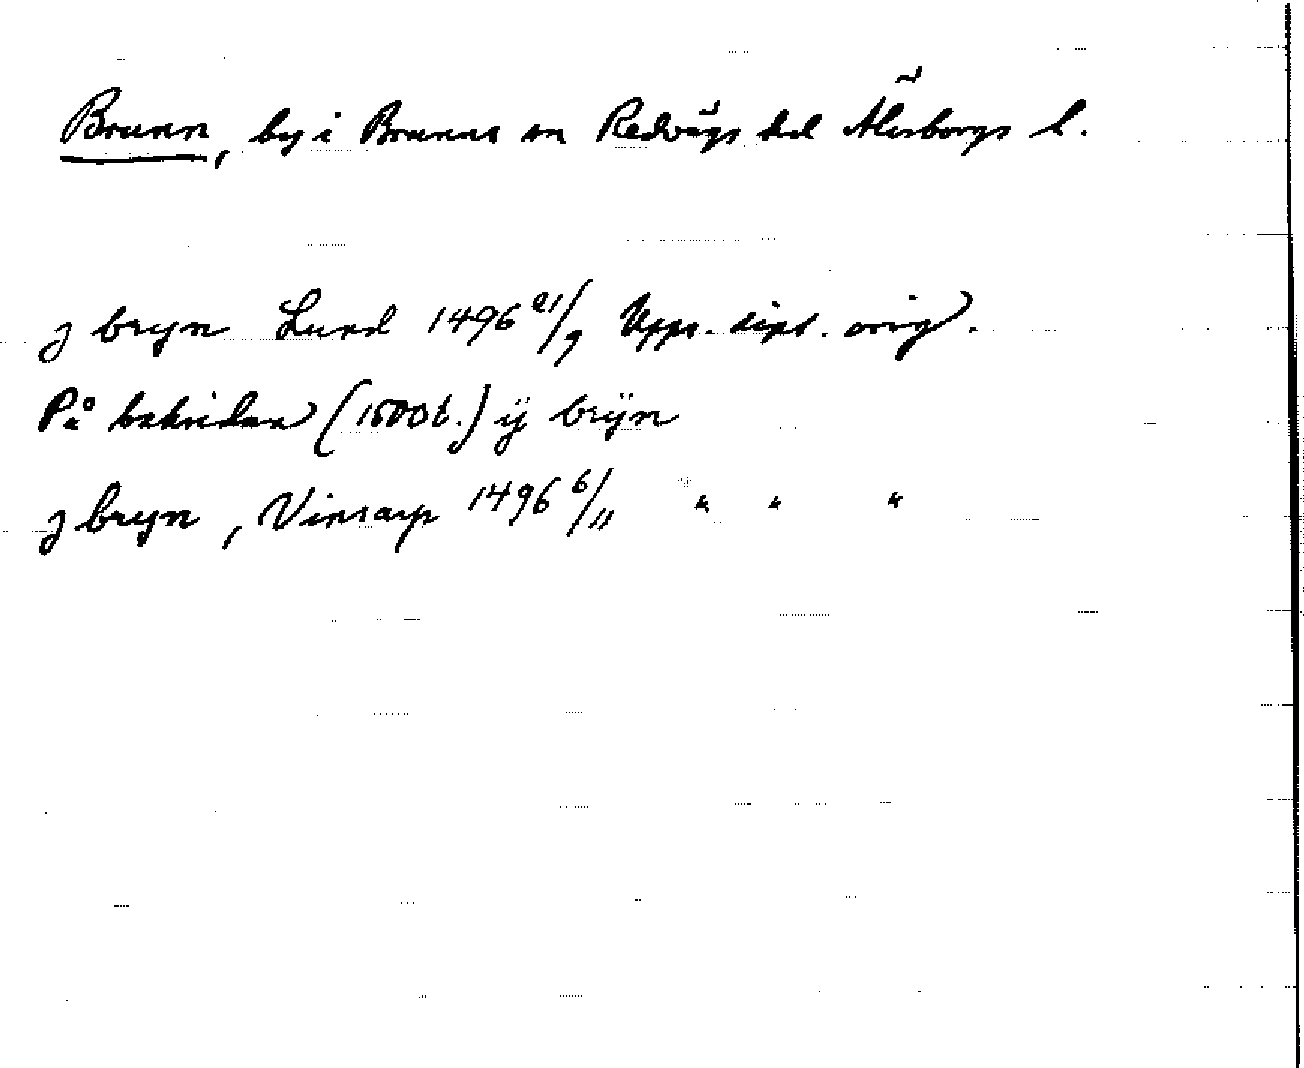 Brunn, by i Brunns sn Redvägs hd Älvsborgs l.
j bryn Lund 1496 21/9 Upps. dipl. orig.
På baksidan (1500 t.) ij brÿn
j bryn, Vinsarp 1496 6/11 " " "